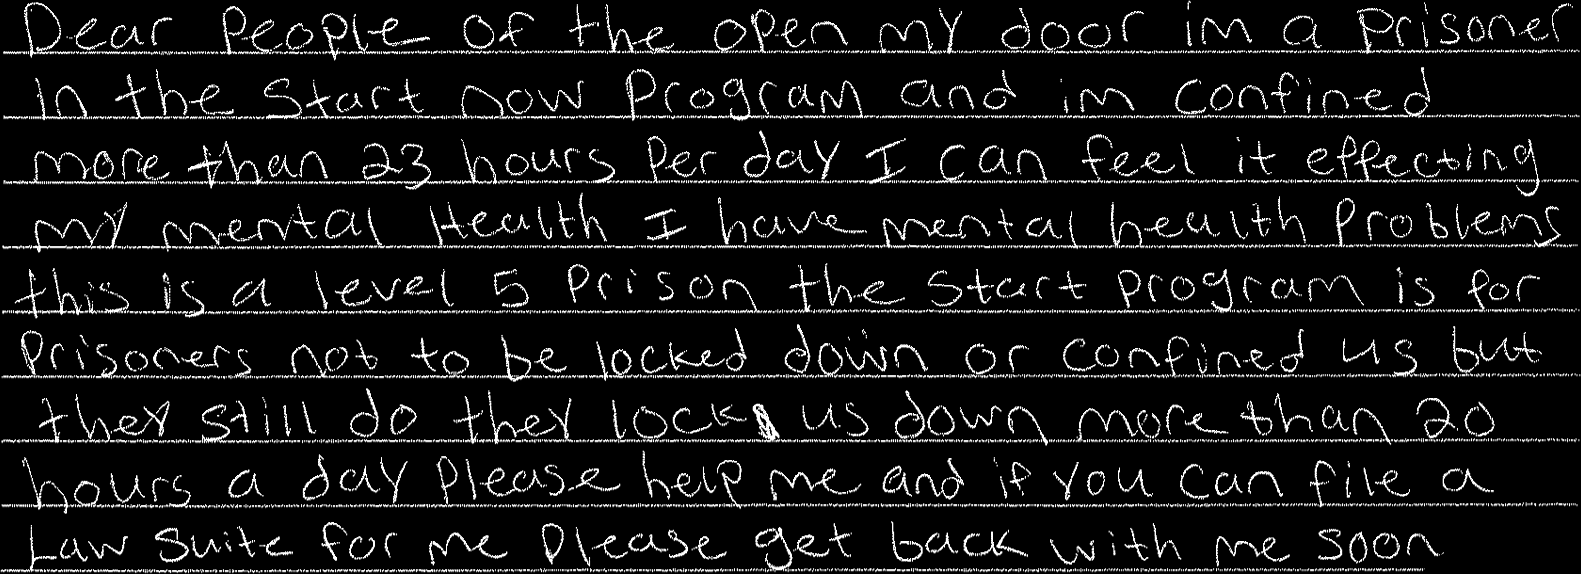 Dear People of the open my door im a prisoner
in the start now program and im confined
more than 23 hours per day I can feel it effecting
my mental Health I have mental health problems
this is a level 5 prison the start program is for
prisoners not to be locked down or confined us but
they still do they lock us down more than 20
hours a day please help me and if you can file a
Law suite for me please get back with me soon